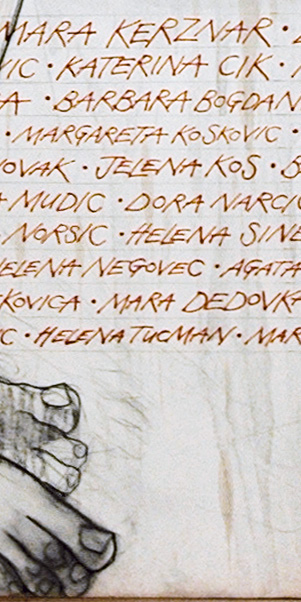 MARA KERZNAR ·
VIC · KATERINA CIK ·
A · BARBARA BOGDAN
· MARGARETA KOSKOVIC ·
NOVAK · JELENA KOS · B
MUDIC · DORA NARCIC
· NORSIC · HELENA SINE
HELENA NEGOVEC · AGATA
KOVICA · MARA DEDOVK
C · HELENA TUCMAN · MAR